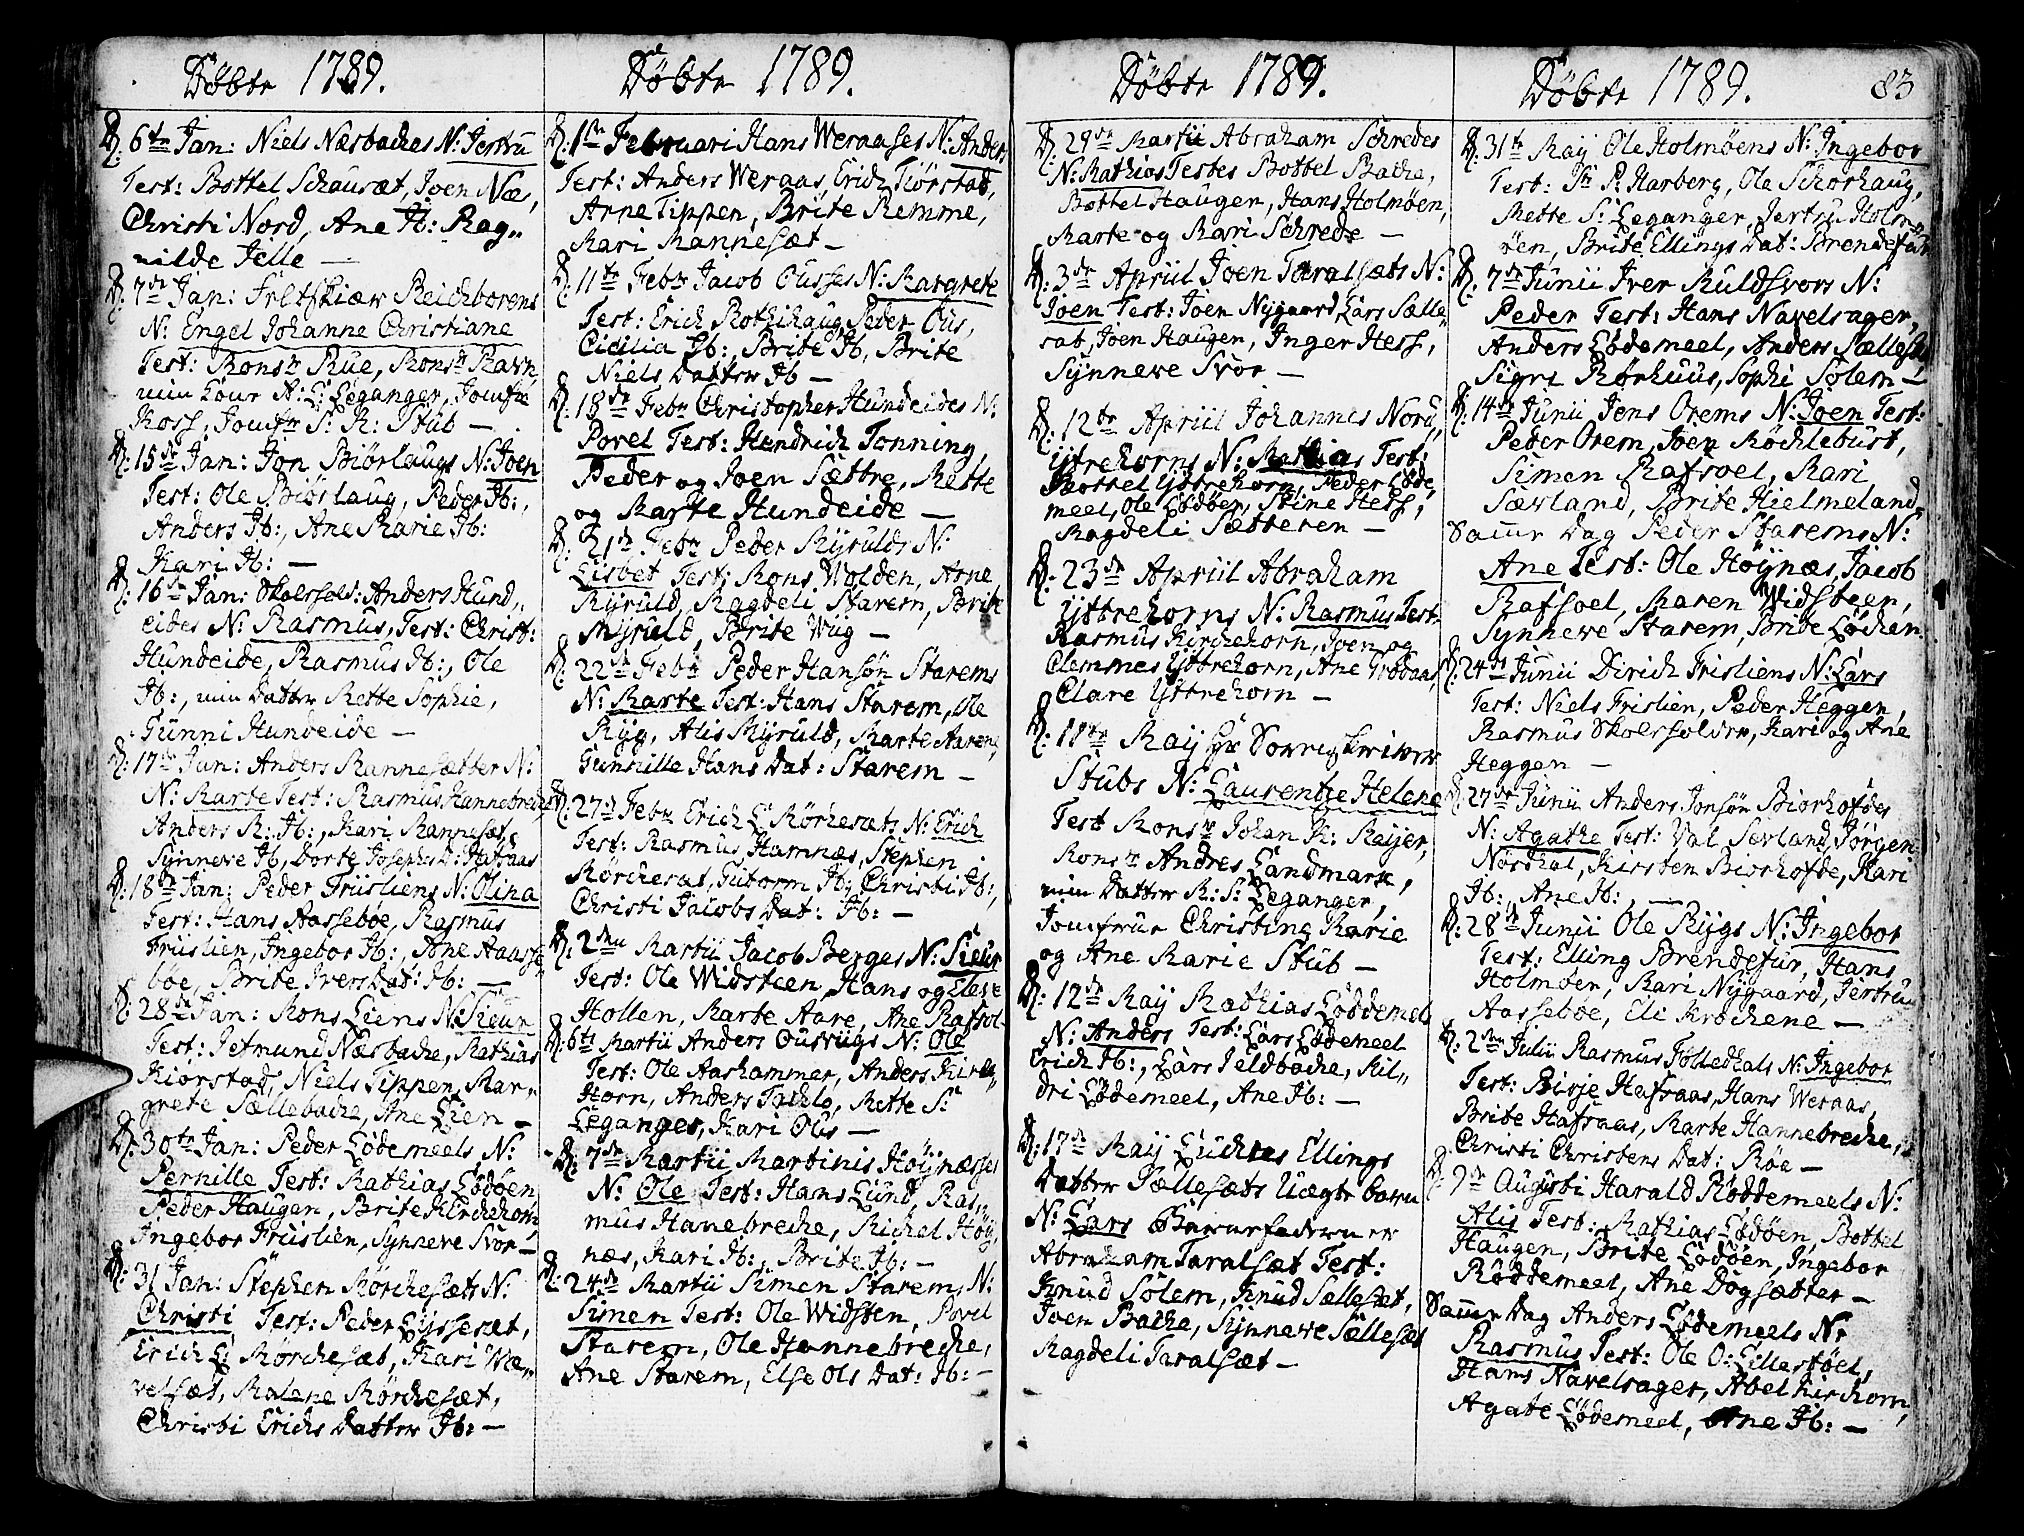 Döbte 1789.
D: 6te Jan: Niels Næsbackes N: Jertru
Test: Bottel Schausæt, Joen Næs,
Christi Nord, Ane Ib: Rag„
nilde Jelle —
D: 7de Jan: Reichborens
N: Engel Johanne Christiane
Test: Mons:r Rue, Mons:r Ravn,
min Kone A: L: Leganger, Jomfr:
Koss, Jomfr S: K: Stub —
D: 15de Jan: Jon Biørlaugs N: Joen
Test: Ole Biørlaug, Peder Ib:,
Anders Ib:, Ane Marie Ib:
Kari Ib: —
D: 16de Jan: Skoesfold: Anders Hund„
eides N: Rasmus, Test: Christ:
Hundeide, Rasmus Ib:, Ole
Ib:, min Datter Mette Sophie,
Gunni Hundeide —
D: 17de Jan: Anders Mannesætter N:
N: Marte Test: Rasmus Hannebreche
Anders M: Ib:, Kari Mannesæt,
Synneve Ib, Dorte Josephs D: Hafraas
D: 18de Jan: Peder Friisliens N: Olina
Test: Hans Aassebøe, Rasmus
Friislien, Ingebor Ib:, Ane Aasse„
bøe, Brite Ivers Dat: Ib: —
D: 28de Jan: Mons Liens N: Sieur
Test: Jetmund Næsbacke, Mathias
Kiørstad, Niels Tippen, Mar„
grete Sællebacke, Ane Lien —
D: 30te Jan: Peder Lødemeels N:
Pernille Test: Mathias Lødøen
Peder Haugen, Brite Kirckehorn,
Ingebor Friislien, Synneve Svor —
D: 31 Jan: Stephen Mørchesæts N:
Christi Test: Peder Lyssesæt,
Erich L: Mørchesæt, Kari Wæ„
velsæt, Malene Mørchesæt,
Christi Erichs Datter Ib: —
Döbte 1789.
D: 1ste Februari Hans Weraases N: Anders
Test: Anders Weraas, Erich Kiørstad,
Arne Tippen, Brite Remme,
Mari Mannesæt —
D: 11te Febr: Jacob Ousses N: Margrete
Test: Erich Mothihaug, Peder Ous,
Cicilia Ib:, Brite Ib, Brite
Niels Datter Ib —
D: 18de Febr: Christopher Hundeides N:
Povel Test: Hendrich Tonning,
Peder og Joen Sættre, Mette
og Marte Hundeide —
D: 21de Febr: Peder Myrulds N:
Lisbet Test: Mons Wolden, Arne
Myruld, Magdeli Starem, Brite
Myruld, Brite Wiig —
D: 22de Febr: Peder Hansøn Starems
N: Marte Test: Hans Starem, Ole
Myg, Alis Myruld, Marte Aarem,
Gunnille Hans Dat: Starem —
D: 27de Febr: Erich L: Mørkesæts N: Erich
Test: Rasmus Hamnæs, Stephen
Mørchesæt, Gutorm Ib, Christi Ib:,
Christi Jacobs Dat: Ib: —
D: 2den Martii Jacob Berges N: Sieur
Test: Ole Widsteen, Hans og Eleve
Hollen, Marte Aare, Ane Rafsol
D: 6te Martii Anders Ousvugs N: Ole
Test: Ole Aashammer, Anders Kirk„
Horn, Anders Tachlo, Mette S:
Leganger, Kari Olis —
D: 7de Martii Martinis Høynæsses
N: Ole Test: Hans Lund, Ras„
mus Hanebreche, Michel Høy„
næs, Kari Ib:, Brite Ib: —
D: 24de Martii Simen Starems N:
Simen Test: Ole Widsten, Povel
Starem, Ole Hannebreche,
Ane Starem, Else Ols Dat: Ib: —
Döbte 1789.
D: 29de Martii Abraham Schredes
N: Mathias Testes Bottel Backe,
Bottel Haugen, Hans Holmøen,
Marte og Mari Schrede —
D: 3de Apriil Joen Taralsæts N:
Joen Test: Joen Nygaard, Lars Sælle„
sæt, Joen Haugen, Inger Hess,
Synneve Svor —
D: 12te Apriil Johannes Nord„
ijttrehorns N: Mathias Test:
Bottel Ijttrehorn, Peder Løde„
meel, Ole Lødøen, Stine Hess,
Magdeli Sætteren —
D: 23de Apriil Abraham
Ijttrehorns N: Rasmus Test:
Rasmus Kirckehorn, Joen og
Clemmes Ijttrehorn, Ane Grodaas,
Clare Ijttrehorn —
D: 11te Maij Hr Sorrenskriver
Stubs N: Laurentze Helene
Test Monsr Johan K: Meijer,
Monsr Andres Landmark,
min Datter M: S: Leganger,
Jomfruer Christine Marie
og Ane Marie Stub —
D: 12de Maij Mathias Løddemeels
N: Anders Test: Lars Lødemeel
Erich Ib:, Lars Jeldbacke, Kil„
dri Lødemeel, Ane Ib: —
D: 17de Maij Ellings
Datter Sællesæts Uægte barn
N: Lars Barnefaderen er
Abraham Taralsæt Test:
Knud Solem, Knud Sællesæt,
Joen Backe, Synneve Sællesæt
Magdeli Taralsæt —
Döbte 1789. 83
D: 31te Maij Ole Holmøens N: Ingebor
Test: Sr P: Harberg, Ole Schorhaug,
Mette S: Leganger, Jertru Holm„
øen, Brite Ellings Dat: Brendefur
D: 7de Junii Iver Muldsvors N:
Peder Test: Hans Navelsager,
Anders Lødemeel, Anders Sællesæt
Sigri Mørhuus, Sophi Solem —
D: 14de Junii Jens Orems N: Joen Test:
Peder Orem, Joen Møcklebust,
Simen Rafsoel, Mari
Sævland, Brite Hielmeland.
Samme Dag Peder Starems N:
Ane Test: Ole Høynæs, Jacob
Rafsoel, Maren Widsteen,
Synneve Starem, Brite Løcken
D: 24de Junii Dirich Frisliens N: Lars
Test: Niels Frislien, Peder Heggen,
Rasmus Skoesfolder, Kari og Ane
Heggen —
D: 27de Junii Anders Jonsøn Biorhofdes
N: Agathe Test: Val Sevland, Jørgen
Nordhal, Kirsten Biorhofde, Kari
Ib:, Ane Ib:, —
D: 28de Junii Ole Mygs N: Ingebor
Test: Elling Brendefur, Hans
Holmøen, Mari Nygaard, Jertru
Aassebøe, Eli Krochene —
D: 2den Julii Rasmus Følledhals N: Ingebor
Test: Hafraas, Hans Weraas,
Brite Hafraas, Marte Hannebreche,
Christi Christens Dat: Røe —
D: 7de Augusti Harald Røddemeels N:
Alis Test: Mathias Lødøen, Bottel
Haugen, Brite Lødøen, Ingebor
Røddemeel, Ane Dogsætter —
Samme Dag Anders Lødemeels N:
Rasmus Test: Ole O: Lillestøel,
Hans Navelsager, Abel Kirchorn,
Agate Lødemeel, Ane Ib: —